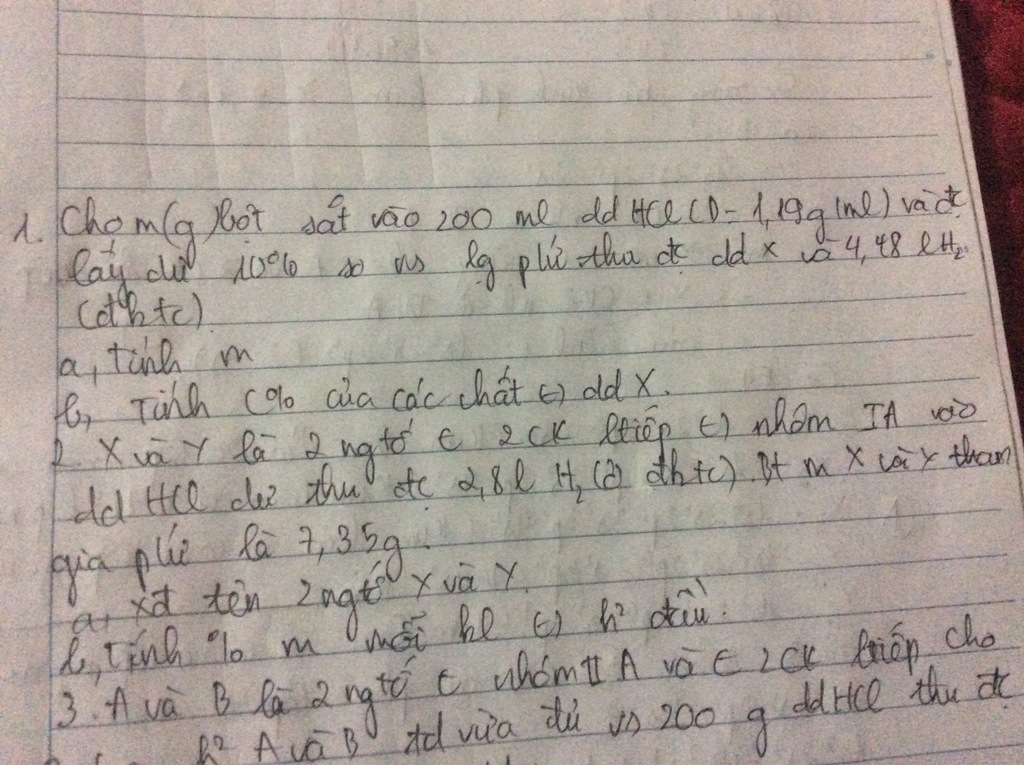 1. Cho m(g) bột sắt vào 200 ml dd HCl (D = 1,19g/ml) và đc
lấy dư 10% so vs lg phứ thu đc dd X và 4,48 l H2
(đhtc)
a, Tính m
b, Tính C% của các chất (t) dd X.
2. X và Y là 2 ngtố € 2CK ltiếp (t) nhóm IA vào
dd HCl dư thu đc 2,8l H2 (ở đhtc). Bt m X và Y tham
gia phứ là 7,35g.
a, xđ tên 2 ngtố X và Y.
b, Tính % m mỗi kl (t) h² đầu.
3. A và B là 2 ngtố € nhóm II A và € 2CK ltiếp cho
h² A và B td vừa đủ vs 200 g dd HCl thu đc